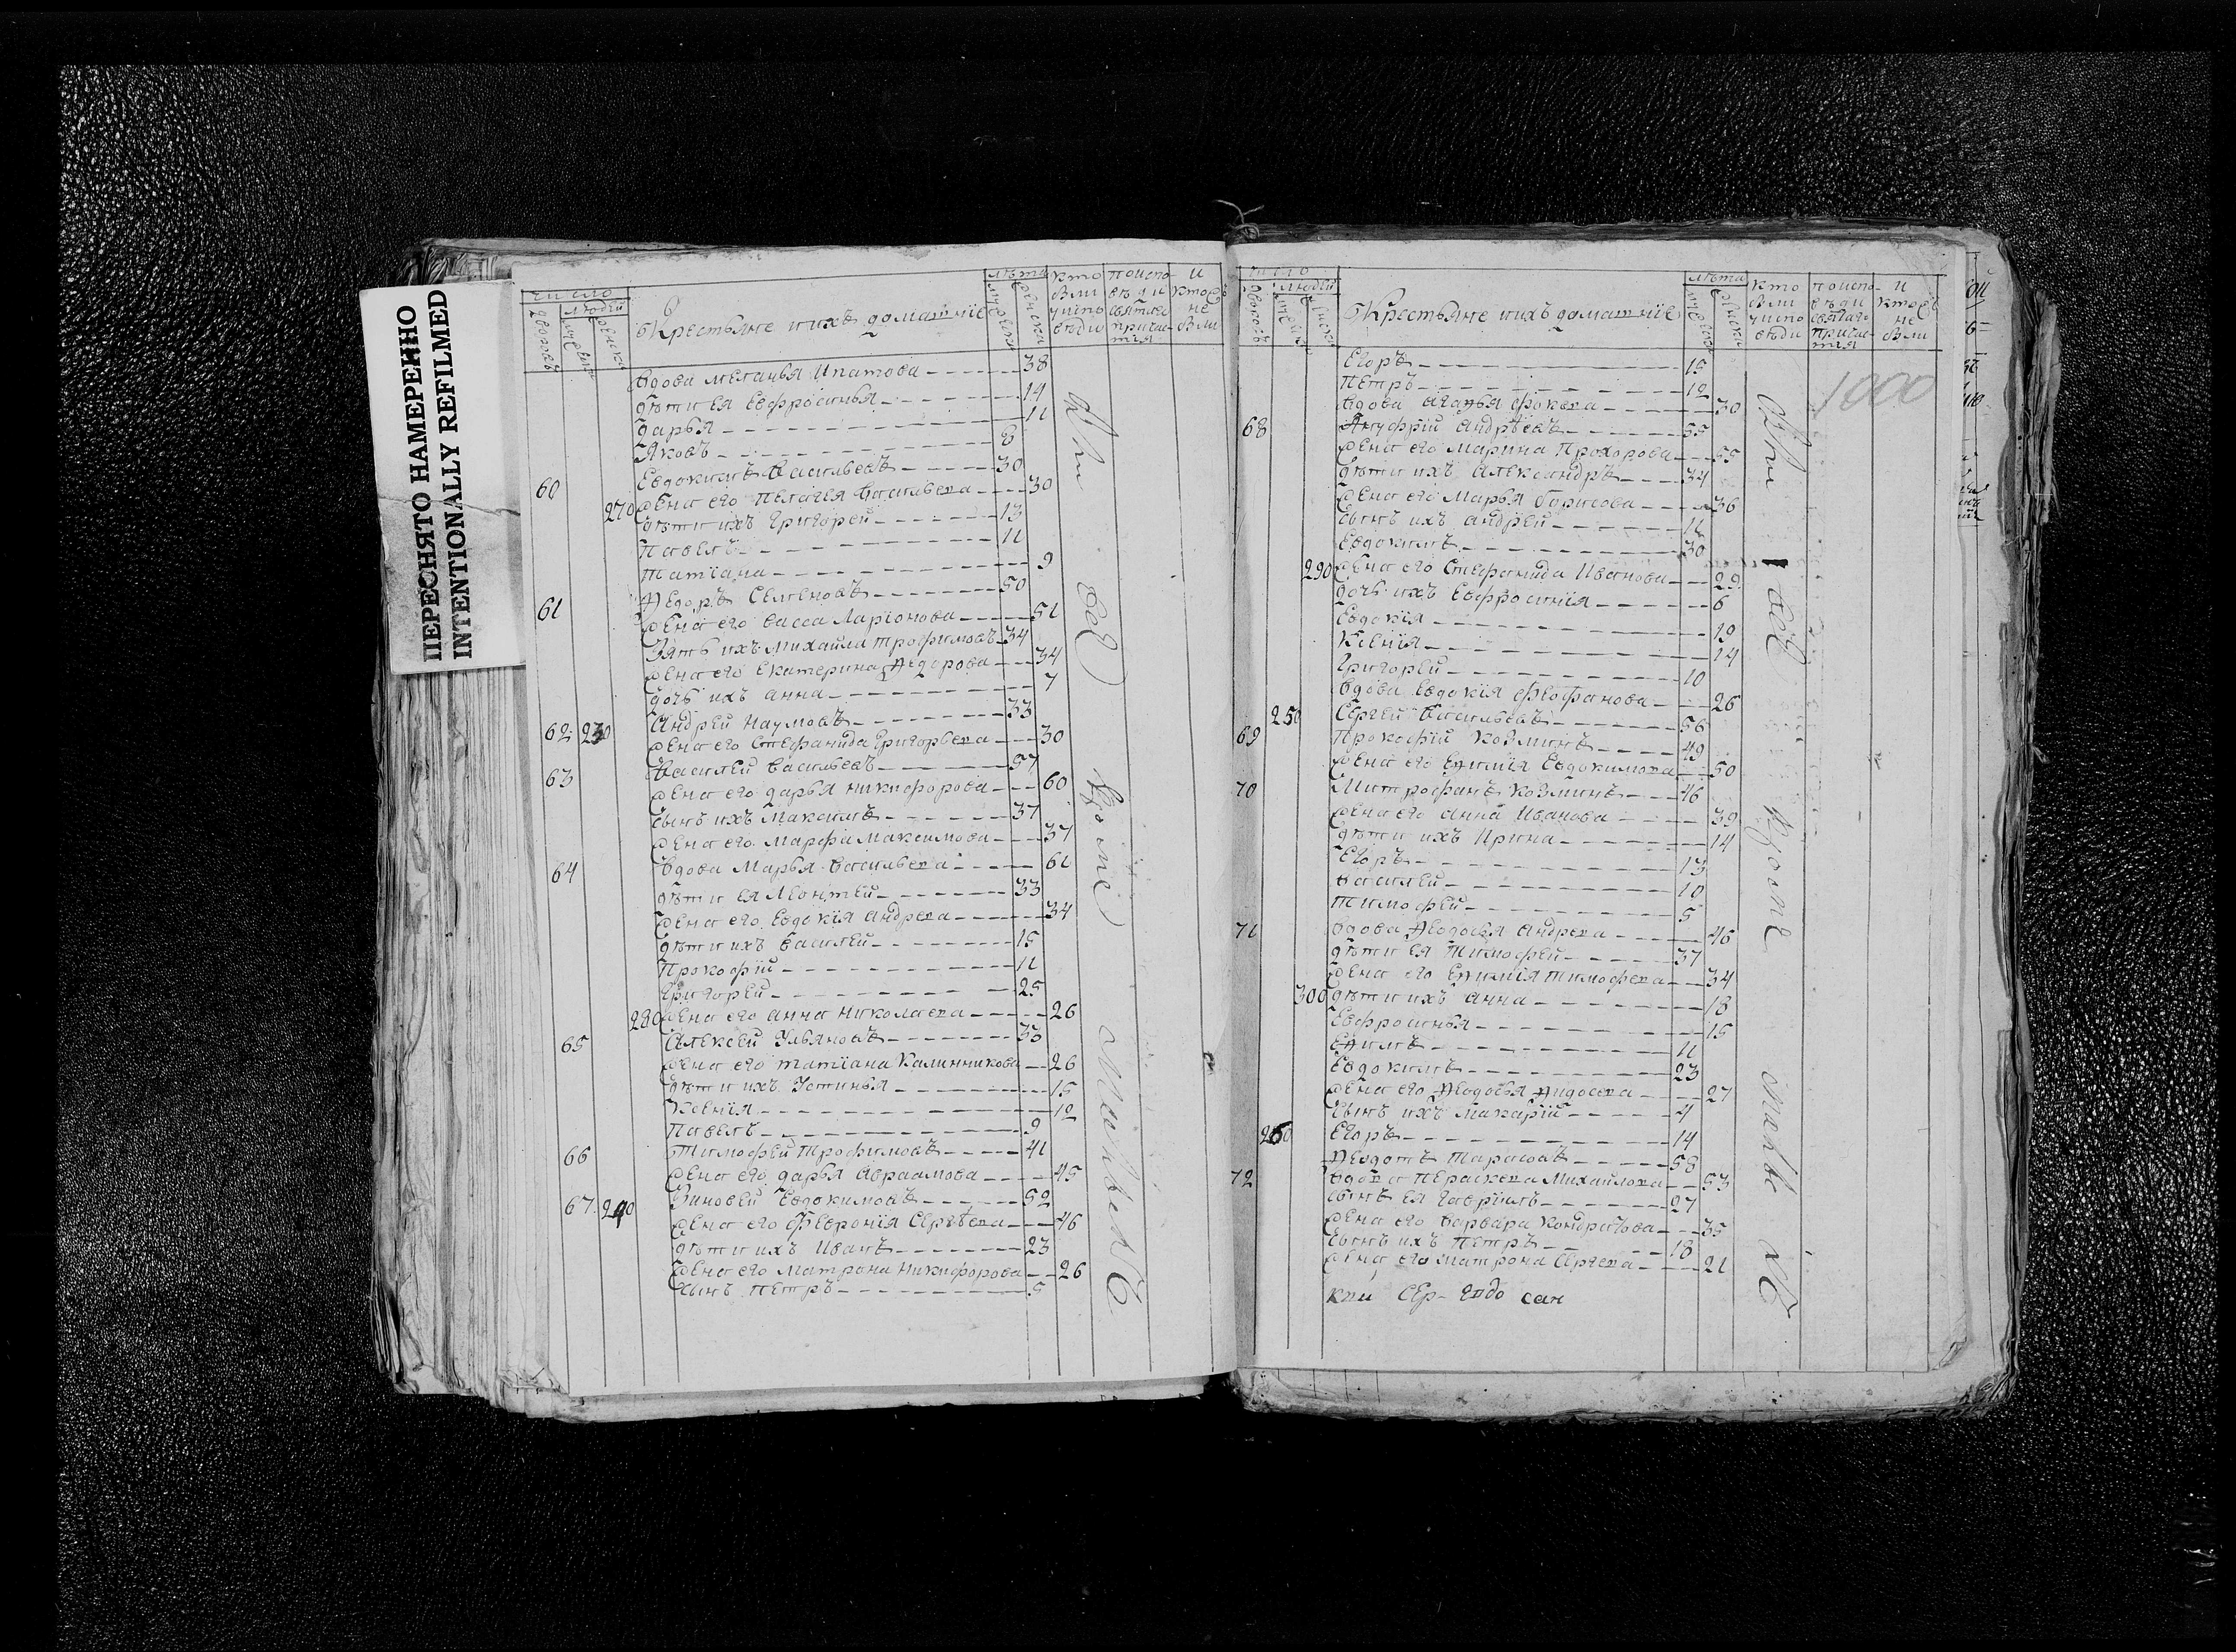 ПЕРЕСНЯТО НАМЕРЕННО
INTENTIONALLY REFILMED
число
людей
Крестьяне и ихъ домашніе
лѣта
кто
были
у испо
вѣди
и
не
были
вдова Меланья Ипатова 38
дѣти ея Евфросинья 14
Дарья 11
Яковъ 8
60 Евдокимъ Васильевъ 30
270 жена его Пелагея Васильева 30
дѣти ихъ Григорей 13
Павелъ 11
Татіана 9
61 Ѳедоръ Семеновъ 50
жена его Васса Ларіонова 51
Зять ихъ Михайла Трофимовъ 34
жена его Екатерина Ѳедорова 34
дочь ихъ Анна 7
62 230 Андрей Наумовъ 33
жена его Стефанида Григорьева 30
63 Василей Васильевъ 57
жена его Дарья Никифорова 60
сынъ ихъ Максимъ 37
жена его Марфа Максимова 37
64 вдова Марья Васильева 61
дѣти ея Леонтей 33
жена его Евдокія Андрева 34
дѣти ихъ Василей 15
Прокофій 11
Григорей 25
280 жена его Анна Николаева 26
65 Алексей Ульяновъ 33
жена его Татіана Калинникова 26
дѣти ихъ Устинья 15
Ксенія 12
Павелъ 9
66 Тимофей Трофимовъ 41
жена его Дарья Авраамова 45
67 240 Зиновей Евдокимовъ 52
жена его Февронія Сергѣева 46
дѣти ихъ Иванъ 23
жена его Матрона Никифорова 26
сынъ Петръ 5
число
людей
Крестьяне и ихъ домашніе
лѣта
кто
были
у испо
вѣди
и
не
были
1000
Егоръ 15
Петръ 12
вдова Агафья Фокева 30
68 Ануфрій Андрѣевъ 55
жена его Марина Прохорова 55
дѣти ихъ Александръ 34
жена его Марья Борисова 36
сынъ ихъ Андрей 11
Евдокимъ 30
290 жена его Стефанида Иванова 29
дочь ихъ Евфросинія 6
Евдокія 19
Ксенія 14
Григорей 10
вдова Евдокія Феофанова 26
250 Сергей Васильевъ 56
69 Прокофій Козминъ 49
жена его Евдокимова 50
70 Митрофанъ Козминъ 46
жена его Анна Иванова 39
дѣти ихъ Ирина 14
Егоръ 13
Василей 10
Тимофей 5
71 вдова Ѳеодосья Андрева 46
дѣти ея Тимофей 37
жена его Тимофева 34
300 дѣти ихъ Анна 18
Евфросинья 15
Ефимъ 11
Евдокимъ 23
жена его Ѳеодосья 27
сынъ ихъ Макарій 4
260 Егоръ 14
Ѳеодотъ Тарасовъ 58
72 вдова Параскева Михайлова 53
сынъ ея Гавріилъ 27
жена его Варвара Кондратова 35
сынъ ихъ Петръ 18
жена его Матрона Сергева 21